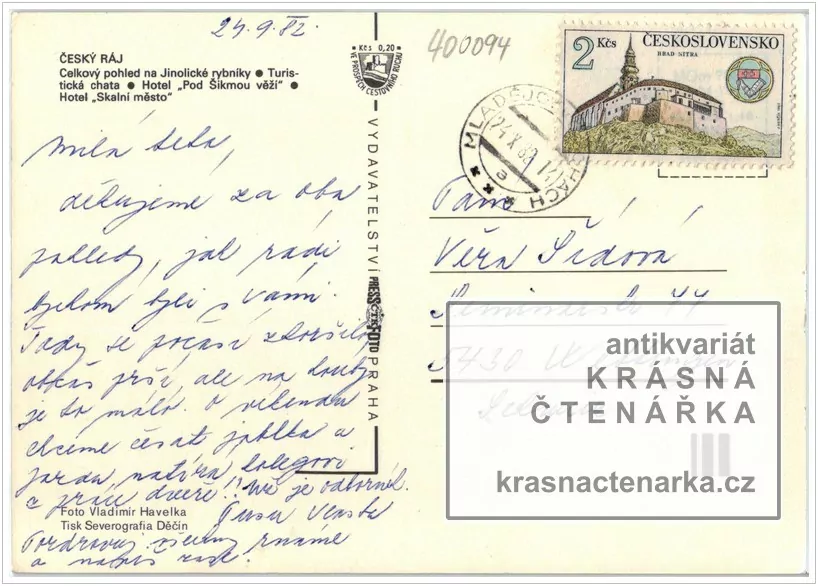 24.9.82.
400094
ČESKÝ RÁJ
Celkový pohled na Jinolické rybníky ● Turis-
tická chata ● Hotel „Pod Šikmou věží" ●
Hotel „Skalní město"
● Kčs 0,20 ●
VE PROSPĚCH CESTOVNÍHO RUCHU
2 Kčs ČESKOSLOVENSKO
HRAD NITRA
24.IX.82
VYDAVATELSTVÍ PRESSFOTO PRAHA
ČTK
Milá teto,
děkujeme za oba
pohledy, jak rádi
bychom byli s Vámi.
Tady se počasí zhoršilo
občas prší, ale na houby
je to málo. O víkendu
chceme česat jablka a
Jarda natírá kolegovi
z práce dveře!! Už je odborník.
Vlasta
Pozdravuj všechny známé
a napiš zase.
Foto Vladimír Havelka
Tisk Severografia Děčín
Paní
Věra Šídová
44
5430
antikvariát
KRÁSNÁ
ČTENÁŘKA
krasnactenarka.cz